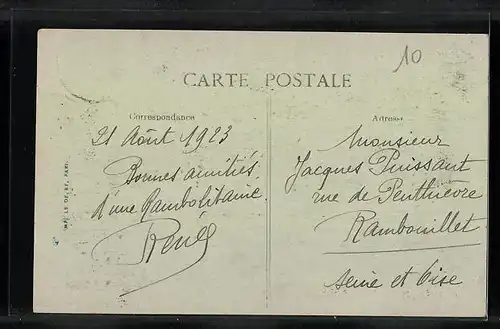 10
CARTE POSTALE
Correspondance
Adresse
21 Août 1923
Bonnes amitiés
d'une Rambolitaine
Renée
Monsieur
Jacques Puissant
rue de Penthièvre
Rambouillet
Seine et Oise